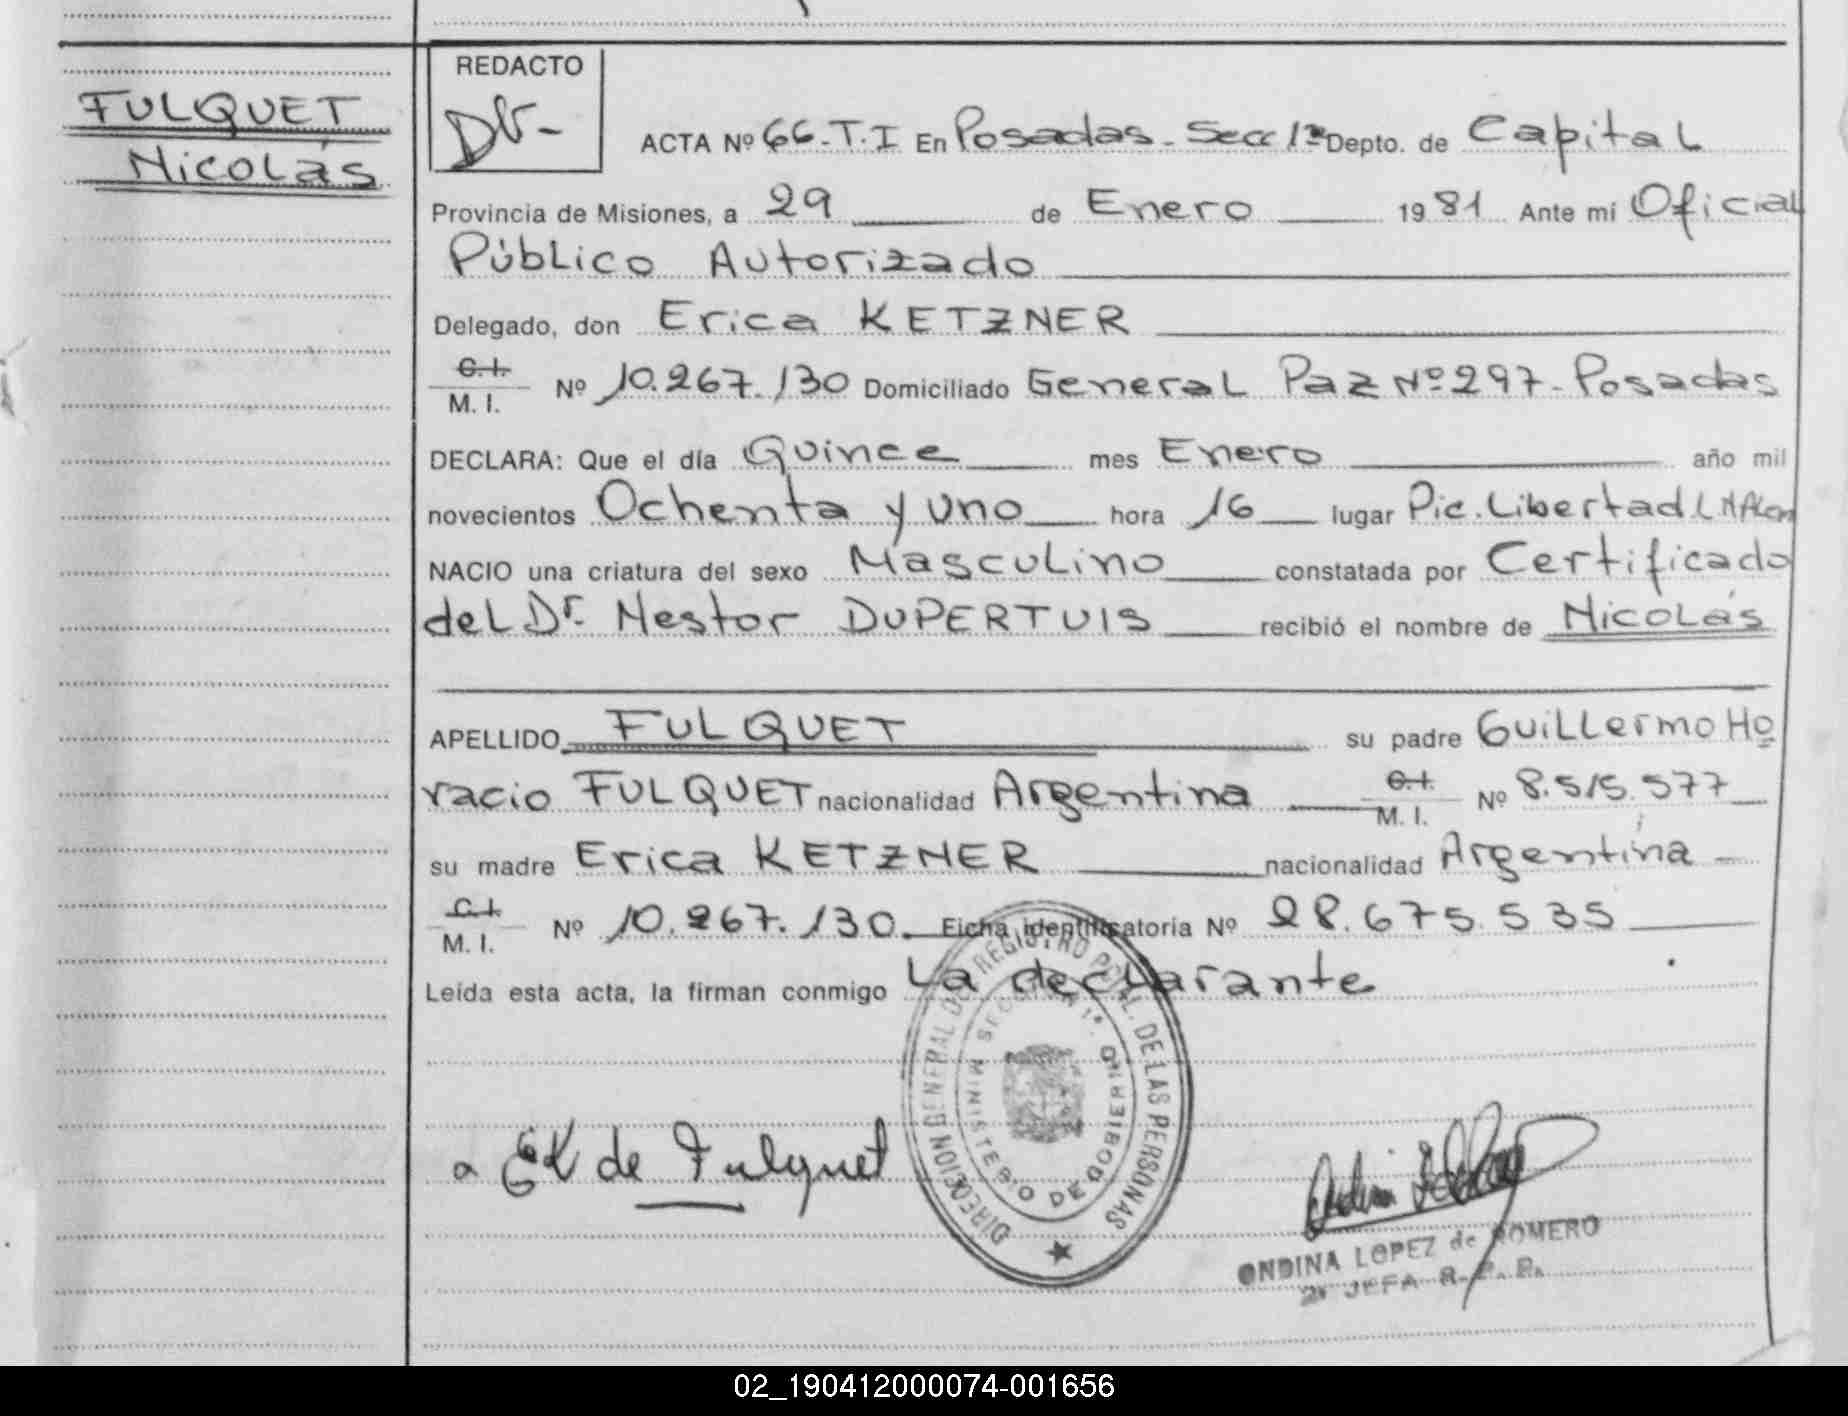 FULQUET
Nicolás
REDACTO
ACTA Nº 66-T.I En Posadas-Secc 1ª Depto. de Capital
Provincia de Misiones, a 29 de Enero 1981 Ante mí Oficial
Público Autorizado
Delegado, don Erica KETZNER
C.I. M. I. Nº 10.267.130 Domiciliado General Paz Nº 297-Posadas
DECLARA: Que el día Quince mes Enero año mil
novecientos Ochenta y uno hora 16 lugar Pic. Libertad
NACIO una criatura del sexo Masculino constatada por Certificado
del Dr. Nestor DUPERTUIS recibió el nombre de Nicolás
APELLIDO FULQUET su padre Guillermo Ho
racio FULQUET nacionalidad Argentina C.I. M. I. Nº 8.515.577
su madre Erica KETZNER nacionalidad Argentina
C.I. M. I. Nº 10.267.130 Ficha identificatoria Nº 28.675.535
Leída esta acta, la firman conmigo La declarante
EK de Fulquet
DIRECCION GENERAL DEL REGISTRO PCIAL. DE LAS PERSONAS
MINISTERIO DE GOBIERNO
ONDINA LOPEZ de ROMERO
JEFA R. P. P.
02_190412000074-001656